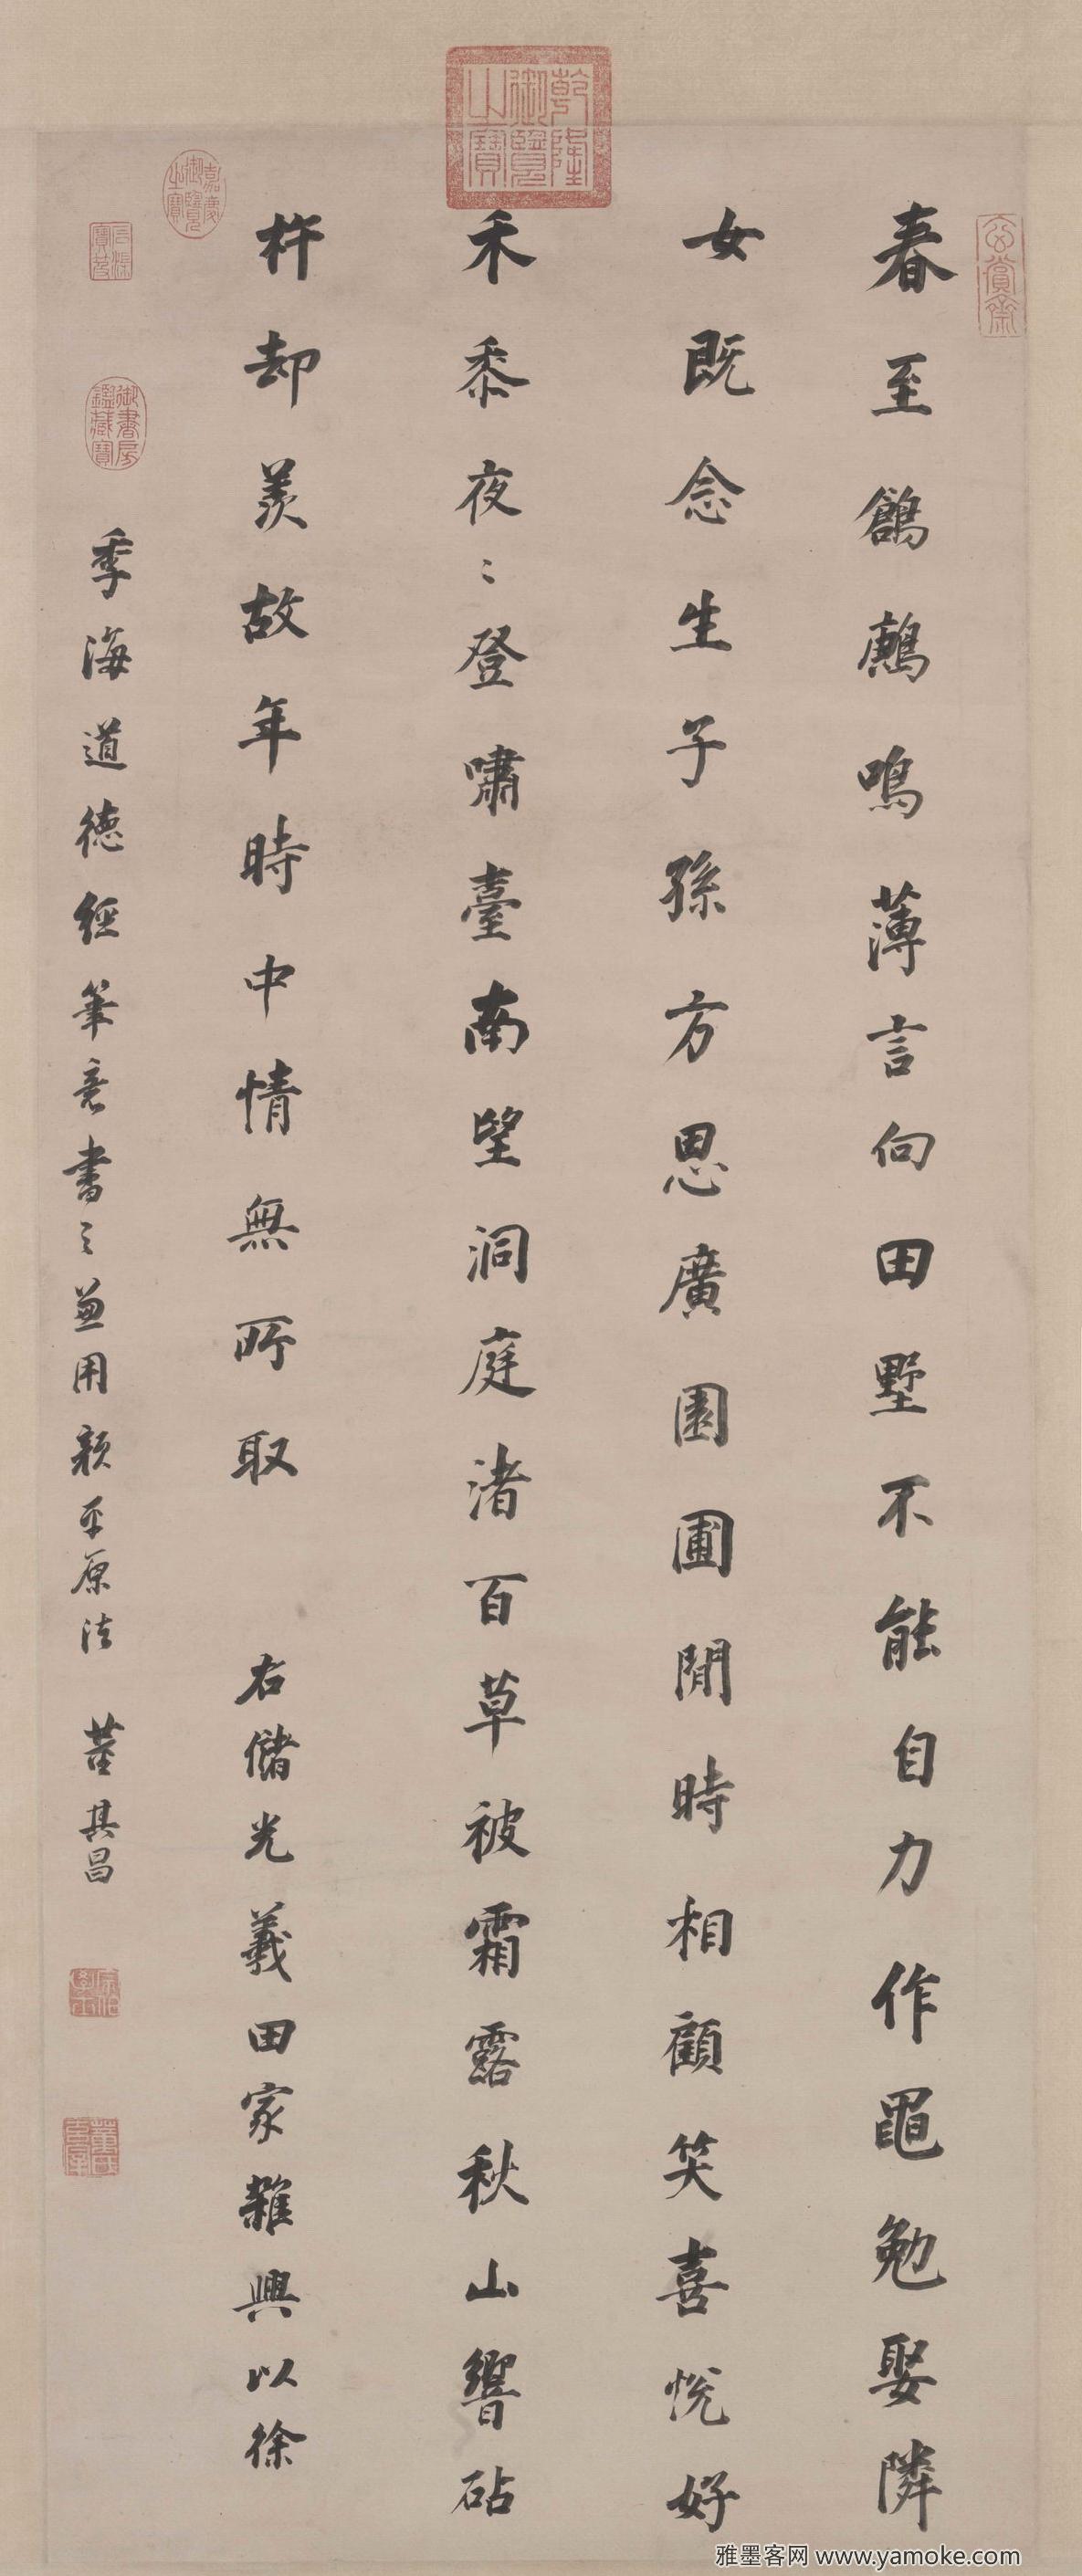 玄賞齋
乾隆御覽之寶
春至鶬鶊鳴薄言向田墅不能自力作黽勉娶隣
女既念生子孫方思廣園圃閒時相顧笑喜悅好
禾黍夜〻登嘯臺南望洞庭渚百草被霜露秋山響砧
杵却羨故年時中情無所取 右儲光義田家雜興以徐
季海道德經筆意書之並用顏平原法 董其昌
嘉慶御覽之寶
石渠寶笈
御書房鑑藏寶
宗伯學士
董氏玄宰
雅墨客网 www.yamoke.com